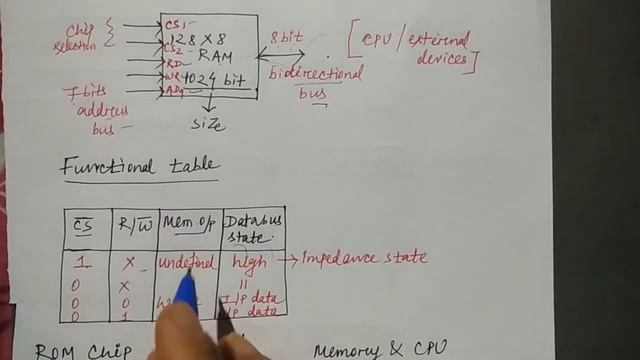 Chip selection
CS1
128 x 8
CS2
RAM
RD
WR
1024 bit
AD7
7 bits address bus
size
8bit
bidirectional
bus
[CPU/external devices]
Functional table
CS R/W Mem. O/P Databus state
1 x undefined high → Impedance state
0 x "
0 0 I/P data
0 1 /P data
ROM Chip
Memory & CPU